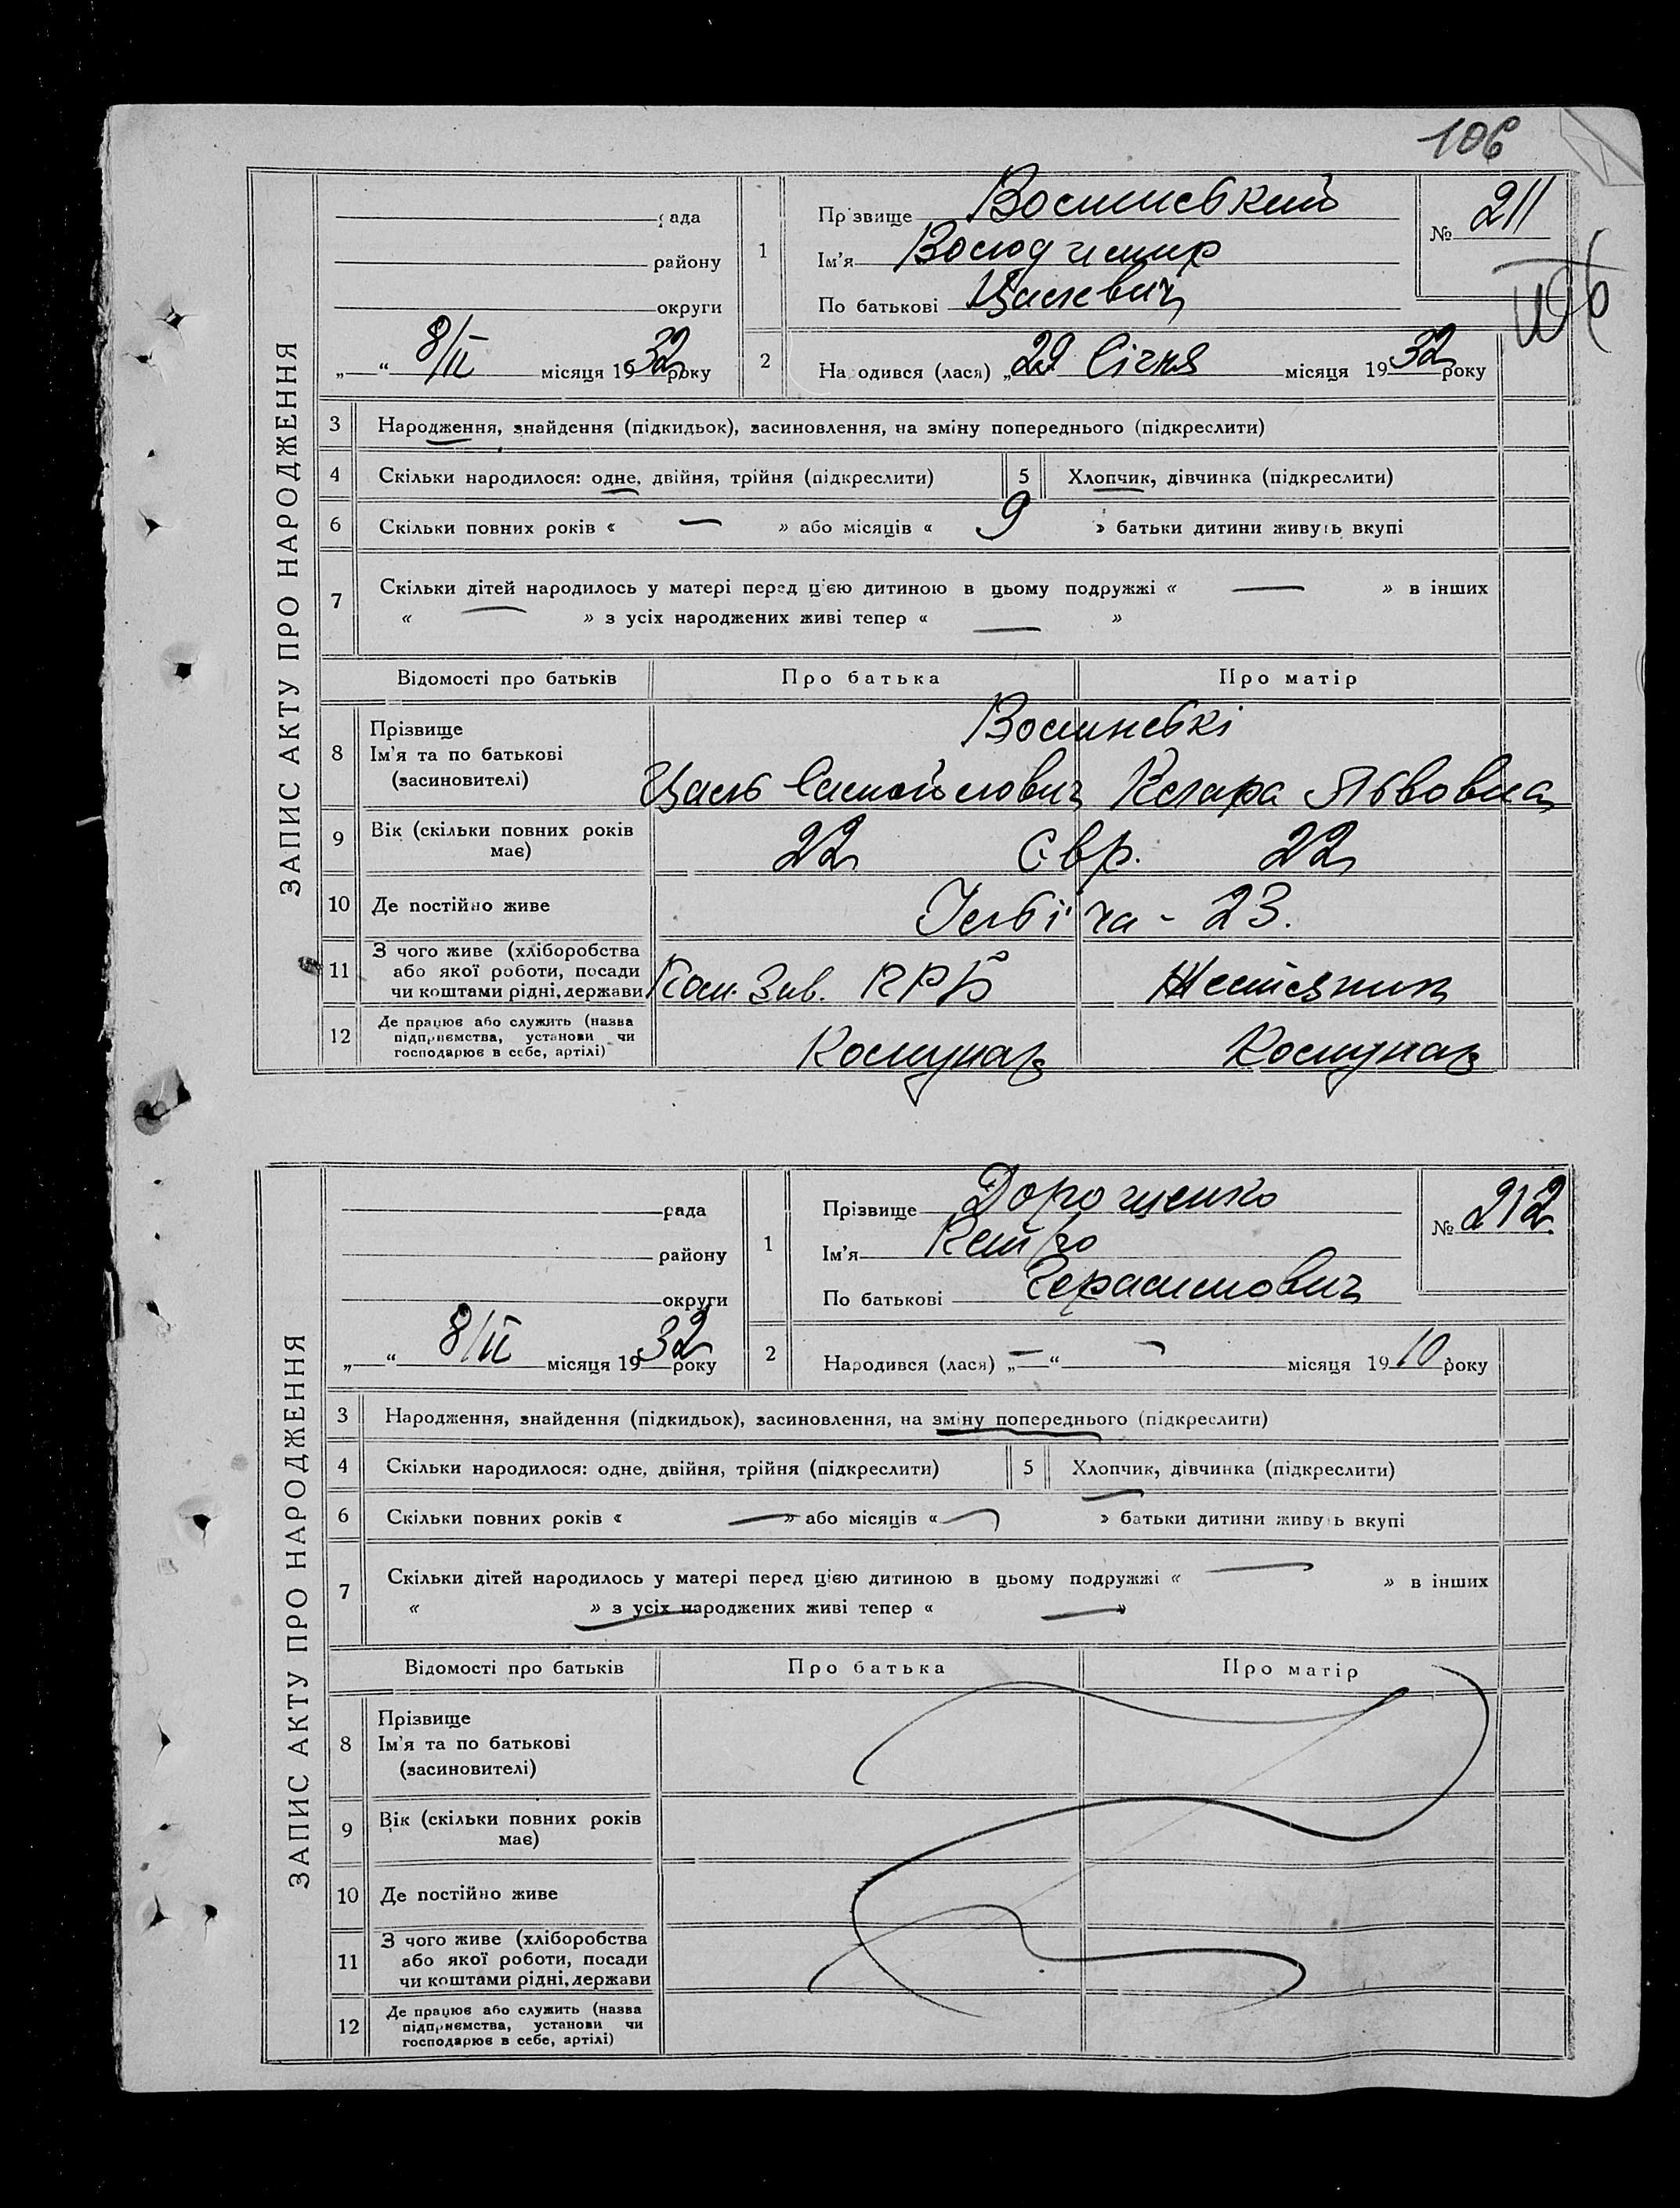 106
ЗАПИС АКТУ ПРО НАРОДЖЕННЯ
рада
району
округи
„ “ 8/II місяця 1932 року
1
Прізвище Волинський
Ім'я Володимир
По батькові Цалевич
№ 211
2
Народився (лася) „29 Січня місяця 1932 року
3 Народження, знайдення (підкидьок), засиновлення, на зміну попереднього (підкреслити)
4 Скільки народилося: одне, двійня, трійня (підкреслити)
5 Хлопчик, дівчинка (підкреслити)
6 Скільки повних років « — » або місяців « 9 » батьки дитини живуть вкупі
7 Скільки дітей народилось у матері перед цією дитиною в цьому подружжі « — » в інших
« — » з усіх народжених живі тепер « — »
Відомості про батьків Про батька Про матір
8 Прізвище
Ім'я та по батькові
(засиновителі)
Волинські
Цаль Самойлович Клара Львовна
9 Вік (скільки повних років
має)
22 Євр. 22
10 Де постійно живе
23.
11 З чого живе (хліборобства
або якої роботи, посади
чи коштами рідні, держави
Пом. Зав.
12 Де працює або служить (назва
підприємства, установи чи
господарює в себе, артілі)
Комунар Комунар
ЗАПИС АКТУ ПРО НАРОДЖЕННЯ
рада
району
округи
„ “ 8/II місяця 1932 року
1
Прізвище Дорощенко
Ім'я Петро
По батькові Герасимович
№ 212
2
Народився (лася) „—“ — місяця 1910 року
3 Народження, знайдення (підкидьок), засиновлення, на зміну попереднього (підкреслити)
4 Скільки народилося: одне, двійня, трійня (підкреслити)
5 Хлопчик, дівчинка (підкреслити)
6 Скільки повних років « — » або місяців « — » батьки дитини живуть вкупі
7 Скільки дітей народилось у матері перед цією дитиною в цьому подружжі « — » в інших
« — » з усіх народжених живі тепер « — »
Відомості про батьків Про батька Про матір
8 Прізвище
Ім'я та по батькові
(засиновителі)
9 Вік (скільки повних років
має)
10 Де постійно живе
11 З чого живе (хліборобства
або якої роботи, посади
чи коштами рідні, держави
12 Де працює або служить (назва
підприємства, установи чи
господарює в себе, артілі)